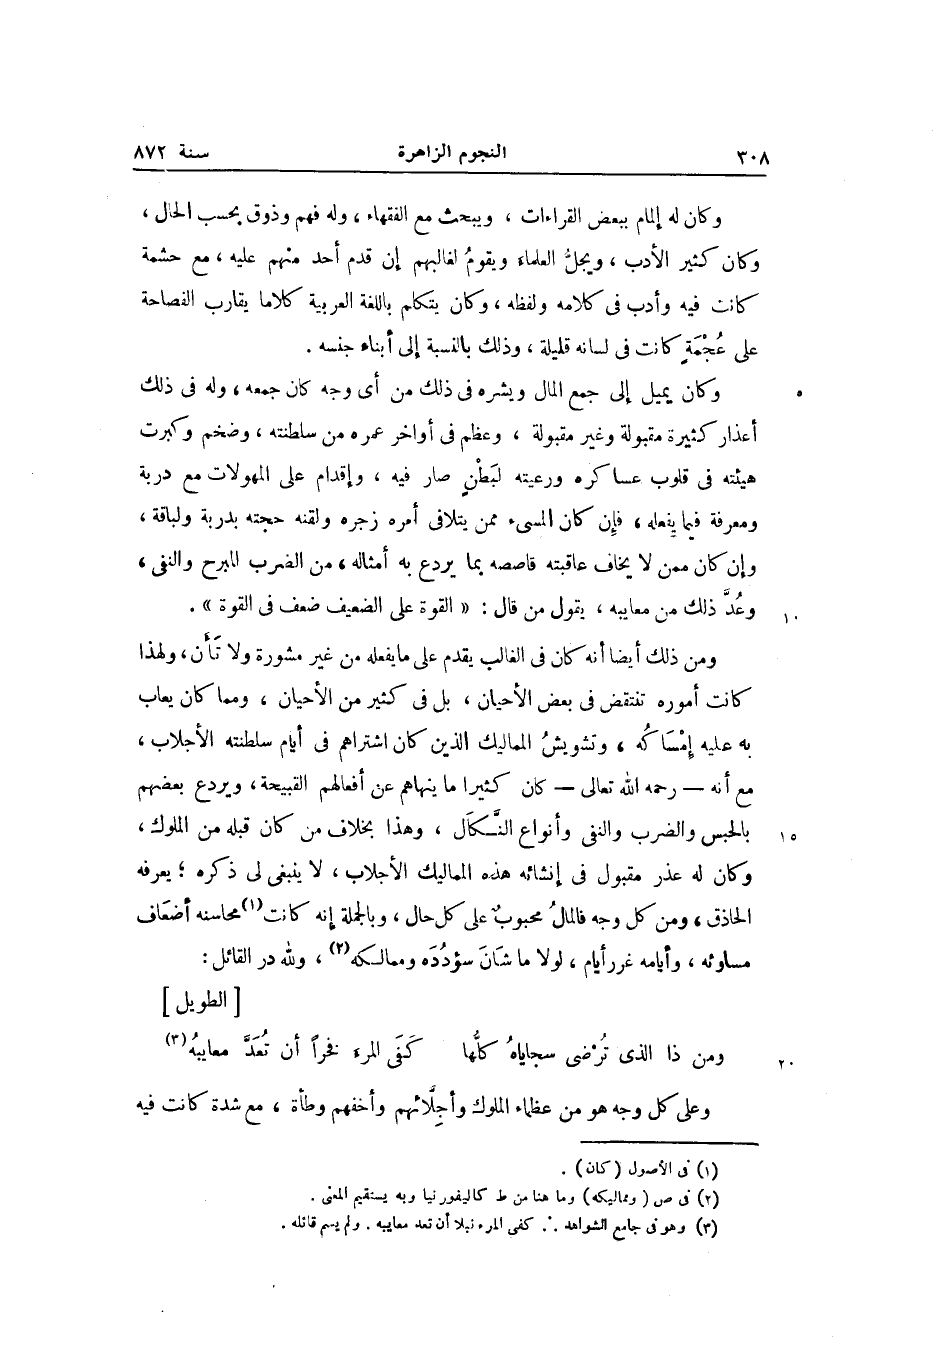 ٣٠٨ النجوم الزاهرة سنة ٨٧٢
وكان له إلمام ببعض القراءات ، ويبحث مع الفقهاء ، وله فهم وذوق بحسب الحال ،
وكان كثير الأدب ، ويجلُّ العلماء ويقومُ لغالبهم إن قدم أحد منهم عليه ، مع حشمة
كانت فيه وأدب فى كلامه ولفظه ، وكان يتكلم باللغة العربية كلاما يقارب الفصاحة
على عُجْمَةٍ كانت فى لسانه قليلة ، وذلك بالنسبة إلى أبناء جنسه .
وكان يميل إلى جمع المال ويشره فى ذلك من أى وجه كان جمعه ، وله فى ذلك ٥
أعذار كثيرة مقبولة وغير مقبولة ، وعظم فى أواخر عمره من سلطنته ، وضخم وكبرت
هيئته فى قلوب عساكره ورعيته لبَطْنٍ صار فيه ، وإقدام على المهولات مع دربة
ومعرفة فيما يفعله ، فإن كان المسىء ممن يتلافى أمره زجره ولقنه حجته بدربة ولباقة ،
وإن كان ممن لا يخاف عاقبته قاصصه بما يردع به أمثاله ، من الضرب المبرح والنفى ،
وعُدَّ ذلك من معايبه ، يقول من قال : « القوة على الضعيف ضعف فى القوة » . ١٠
ومن ذلك أيضا أنه كان فى الغالب يقدم على مايفعله من غير مشورة ولا تَأَن ، ولهذا
كانت أموره تنتقض فى بعض الأحيان ، بل فى كثير من الأحيان ، ومما كان يعاب
به عليه إمْسَاكُه ، وتشويشُ المماليك الذين كان اشتراهم فى أيام سلطنته الأجلاب ،
مع أنه — رحمه الله تعالى — كان كثيرا ما ينهاهم عن أفعالهم القبيحة ، ويردع بعضهم
بالحبس والضرب والنفى وأنواع النَّكَال ، وهذا بخلاف من كان قبله من الملوك ، ١٥
وكان له عذر مقبول فى إنشائه هذه المماليك الأجلاب ، لا ينبغى لى ذكره ؛ يعرفه
الحاذق ، ومن كل وجه فالمالُ محبوبٌ على كل حال ، وبالجملة إنه كانت(١) محاسنه أضعَاف
مساوئه ، وأيامه غرر أيام ، لولا ما شَانَ سؤدُدَه وممالكه(٢) ، ولله در القائل :
[ الطويل ]
ومن ذا الذى تُرْضى سجاياهُ كلُّها كَفَى المرء فخراً أن تُعَدَّ معايبهُ(٣) ٢٠
وعلى كل وجه هو من عظماء الملوك وأجِلَّائهم وأخفهم وطأة ، مع شدة كانت فيه
(١) فى الأصول (كان) .
(٢) فى ص ( ومماليكه) وما هنا من ط كاليفورنيا وبه يستقيم المعنى .
(٣) وهو فى جامع الشواهد .˙. كفى المرء نبلا أن تعد معايبه . ولم يسم قائله .